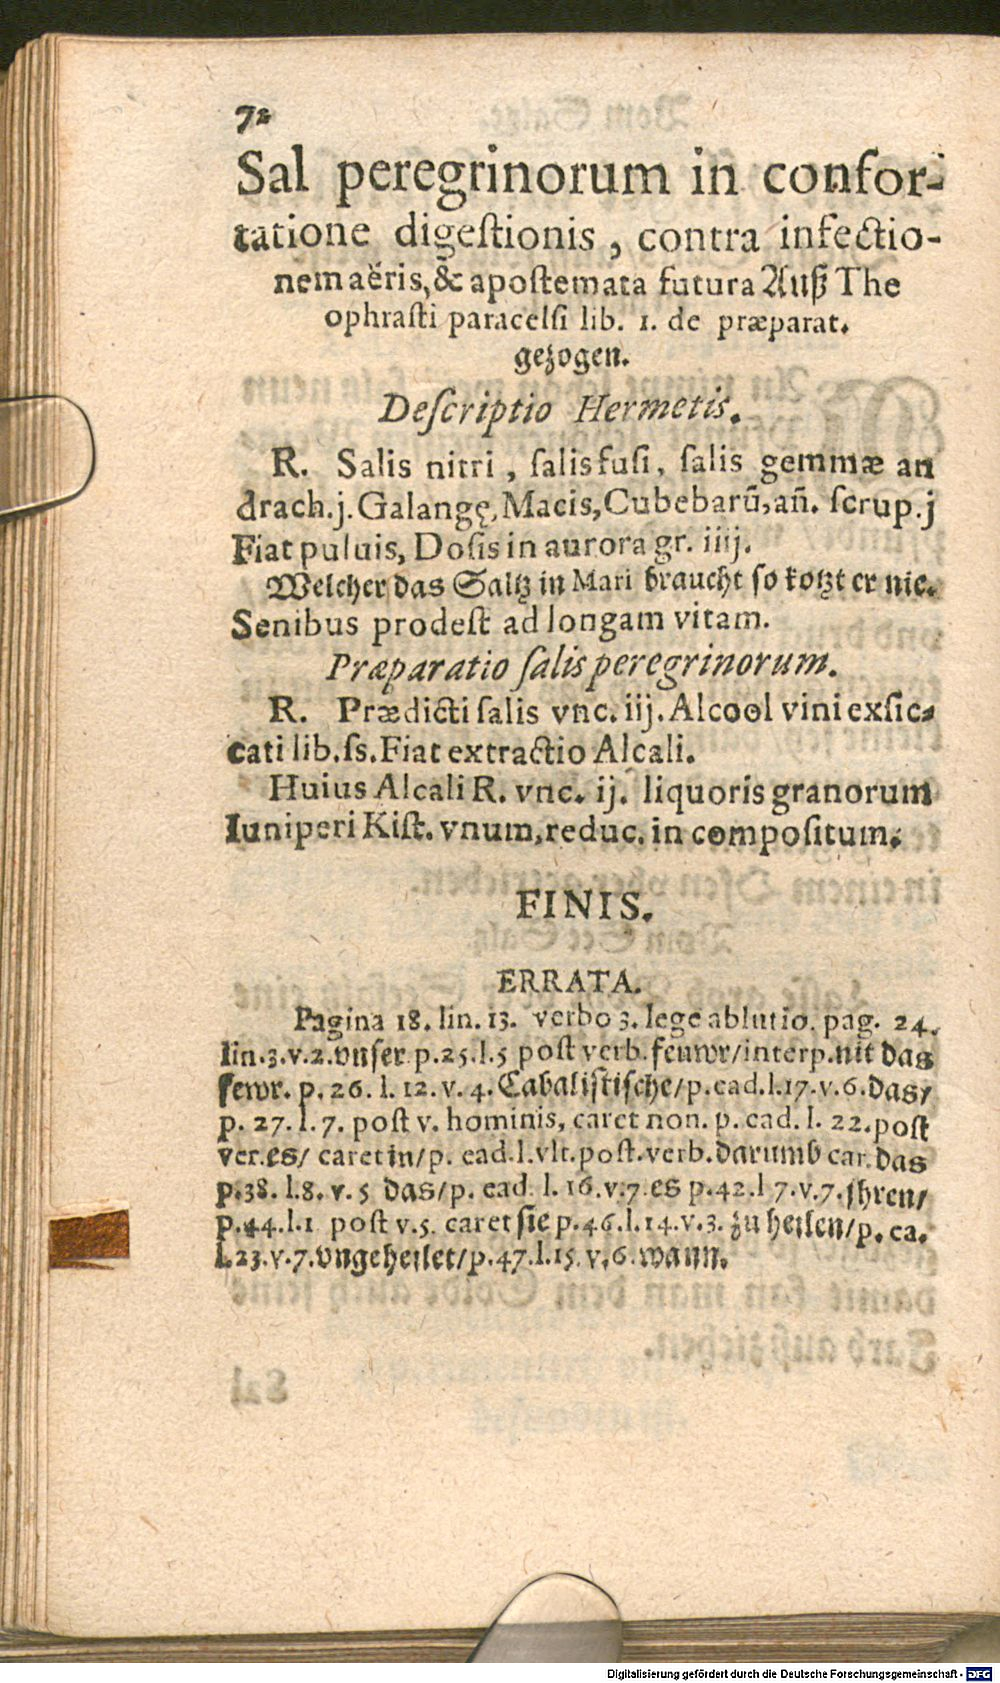 72
Sal peregrinorum in confor-
tatione digeſtionis, contra infectio-
nem aëris, & apoſtemata futura Auß The
ophraſti paracelſi lib. 1. de præparat.
gezogen.
Deſcriptio Hermetis.
R. Salis nitri, ſalis fuſi, ſalis gemmæ an
drach. j. Galangę, Macis, Cubebarũ, añ. ſcrup. j
Fiat puluis, Doſis in aurora gr. iiij.
Welcher das Saltz in Mari braucht ſo kotzt er nie.
Senibus prodeſt ad longam vitam.
Præparatio ſalis peregrinorum.
R. Prædicti ſalis vnc. iij. Alcool vini exſic-
cati lib. ſs. Fiat extractio Alcali.
Huius Alcali R. vnc. ij. liquoris granorum
Iuniperi Kiſt. vnum, reduc. in compoſitum.
FINIS.
ERRATA.
Pagina 18. lin. 13. verbo 3. lege ablutio. pag. 24.
lin. 3. v. 2. vnſer p. 25. l. 5 poſt verb. feuwr/ interp. nit das
fewr. p. 26. l. 12. v. 4. Cabaliſtiſche/ p. ead. l. 17. v. 6. das/
p. 27. l. 7. poſt v. hominis, caret non. p. ead. l. 22. poſt
ver. es/ caret in/ p. ead. l. vlt. poſt. verb. darumb car. das
p. 38. l. 8. v. 5 das/ p. ead. l. 16. v. 7. es p. 42. l 7. v. 7. jhren/
p. 44. l. 1 poſt v. 5. caret ſie p. 46. l. 14. v. 3. zu heilen/ p. ea.
l. 23. v. 7. vngeheilet/ p. 47. l. 15. v. 6. wann.
Digitalisierung gefördert durch die Deutsche Forschungsgemeinschaft - DFG